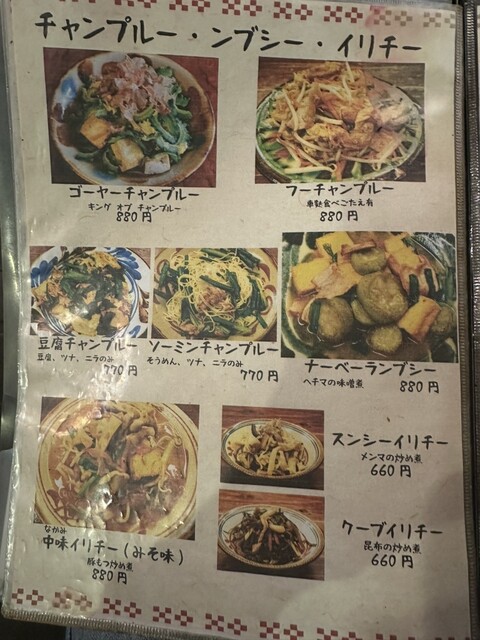 チャンプルー・ンブシー・イリチー
ゴーヤーチャンプルー
キング オブ チャンプルー
880円
フーチャンプルー
車麩食べごたえ有
880円
豆腐チャンプルー
豆腐、ツナ、ニラのみ
770円
ソーミンチャンプルー
そうめん、ツナ、ニラのみ
770円
ナーベーランブシー
ヘチマの味噌煮
880円
なかみ
中味イリチー(みそ味)
豚もつ炒め煮
880円
スンシーイリチー
メンマの炒め煮
660円
クーブイリチー
昆布の炒め煮
660円